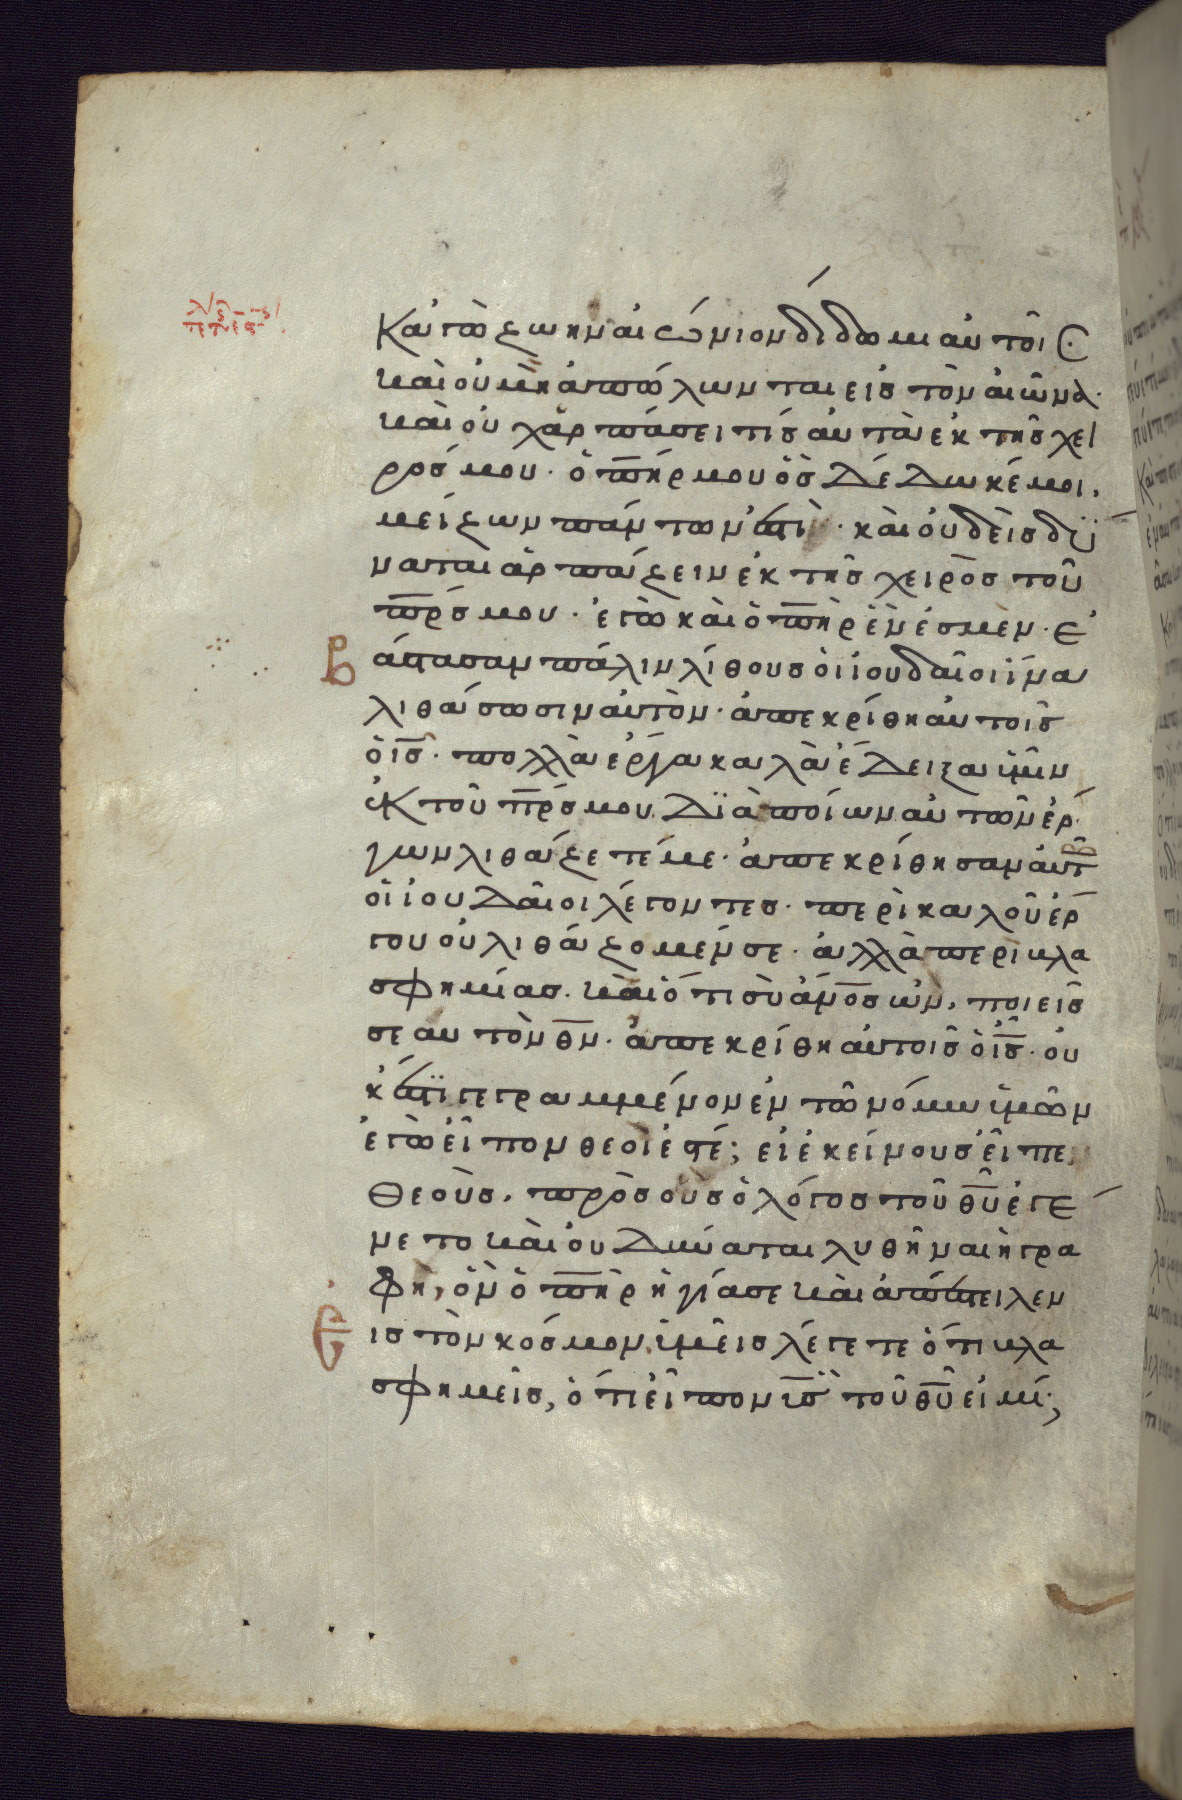 Κἀγὼ ζωὴν αἰώνιον δίδωμι αὐτοῖς·
καὶ οὐ μὴ ἀπόλωνται εἰς τὸν αἰῶνα·
καὶ οὐχ ἁρπάσει τίς αὐτὰ ἐκ τῆς χει
ρός μου· ὁ π̅η̅ρ μου ὃς δέδωκέ μοι,
μείζων πάντων ἐστὶ· καὶ οὐδεὶς δύ
ναται ἁρπάζειν ἐκ τῆς χειρὸς τοῦ
π̅ρ̅ς μου· ἐγὼ καὶ ὁ π̅η̅ρ ἕν ἐσμεν· ἐ
βάστασαν πάλιν λίθους οἱ ἰουδαῖοι ἵνα
λιθάσωσιν αὐτὸν· ἀπεκρίθη αὐτοῖς
ὁ ι̅ς̅· πολλὰ ἔργα καλὰ ἔδειξα ὑμῖν
ἐκ τοῦ π̅ρ̅ς μου. διὰ ποίων αὐτῶν ἔρ
γων λιθάζετέ με· ἀπεκρίθησαν αὐτ
οἱ ἰουδαῖοι λέγοντες· περὶ καλοῦ ἔρ
γου οὐ λιθάζομέν σε· ἀλλὰ περὶ βλα
σφημίας. καὶ ὅτι σὺ ἄν̅ο̅ς ὢν, ποιεῖς
σεαυτὸν θ̅ν̅· ἀπεκρίθη αὐτοῖς ὁ ι̅ς̅· οὐ
κ ἔστι γεγραμμένον ἐν τῶ νόμω ὑμῶν
ἐγὼ εἶπον θεοί ἐστέ; εἰ ἐκείνους εἶπεν
θεοὺς, πρὸς οὓς ὁ λόγος τοῦ θ̅υ̅ ἐγέ
νετο καὶ οὐ δύναται λυθῆναι ἡ γρα
φή, ὃν ὁ π̅η̅ρ ἡγίασε καὶ ἀπέστειλεν
εἰς τὸν κόσμον, ὑμεῖς λέγετε ὅτι βλα
σφημεῖς, ὅτι εἶπον υ̅ς̅ τοῦ θ̅υ̅ εἰμί;